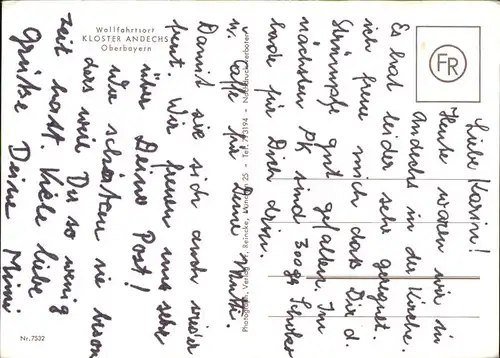 Wallfahrtsort
KLOSTER ANDECHS
Oberbayern
FR
Liebe Karin!
Heute waren wir in
Andechs in der Kirche.
Es hat leider sehr geregnet.
ich freue mich dass Dir d.
Strümpfe gut gefallen. Im
nächsten PK sind 300 gr Schoko
lade für Dich drin.
u. Caffe für Deine Mutti.
Damit sie sich auch wieder
freut. Wir freuen uns sehr
über Deine Post!
Wir schätzen sie beson
ders weil Du so wenig
Zeit hast. Viele liebe
Grüße Deine Mimi
Photograph. Verlag F. Reincke, München 25 - Tel. 73194 - Nachdruck verboten
Nr. 7532